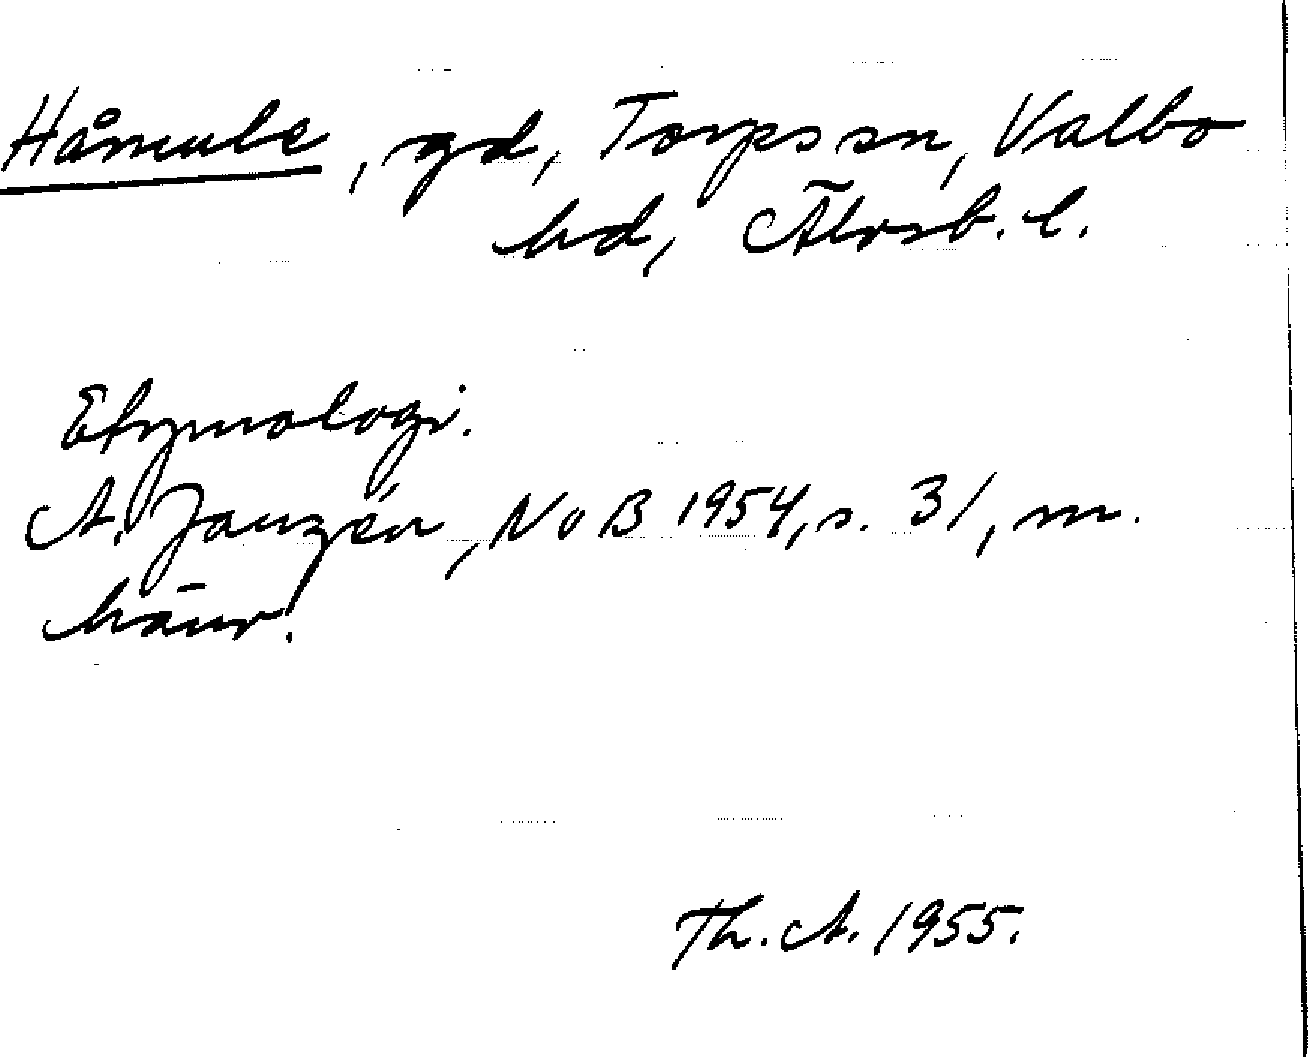 Håmule, gd, Torps sn, Valbo
hd, Älvsb. l.
Etymologi.
A. Janzén, NoB 1954, s. 31, m.
hänv.
Th. A. 1955.